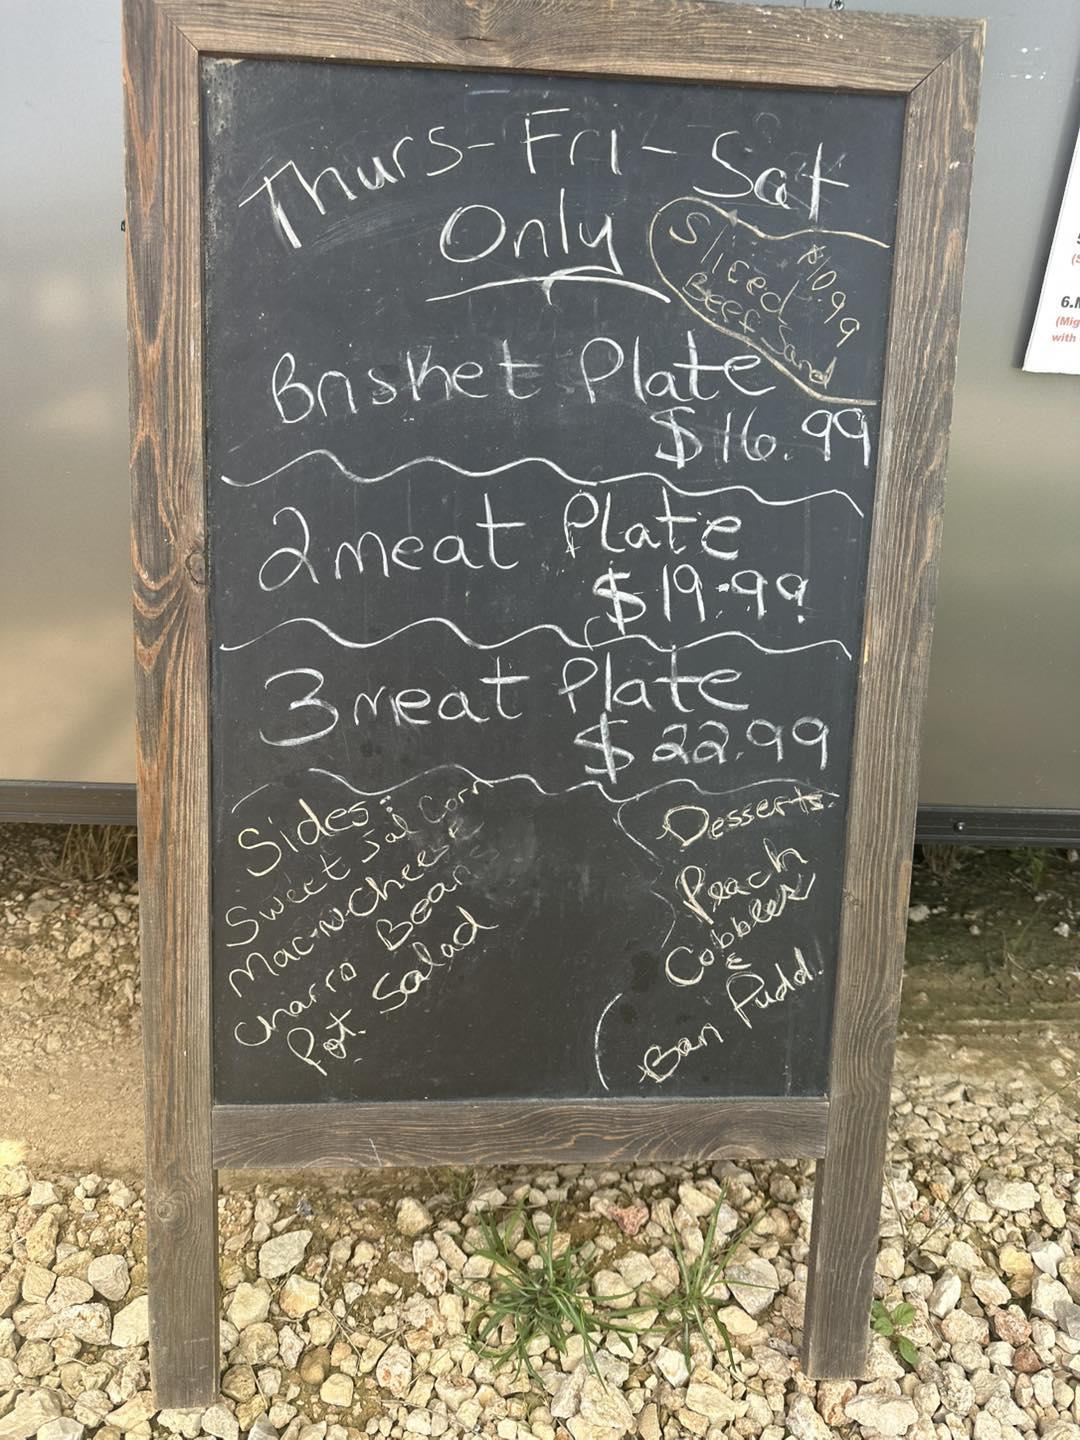 Thurs-Fri-Sat
Only
Sliced $10.99
Beef Sand
Brisket Plate
$16.99
2 meat Plate
$19.99
3 meat Plate
$22.99
Sides:
Sweet Jal Corn
Mac-N-Cheese
Charro Bean
Pot. Salad
Desserts:
Peach
Cobbler
&
Ban Pudd.
6.M
(Mig
with